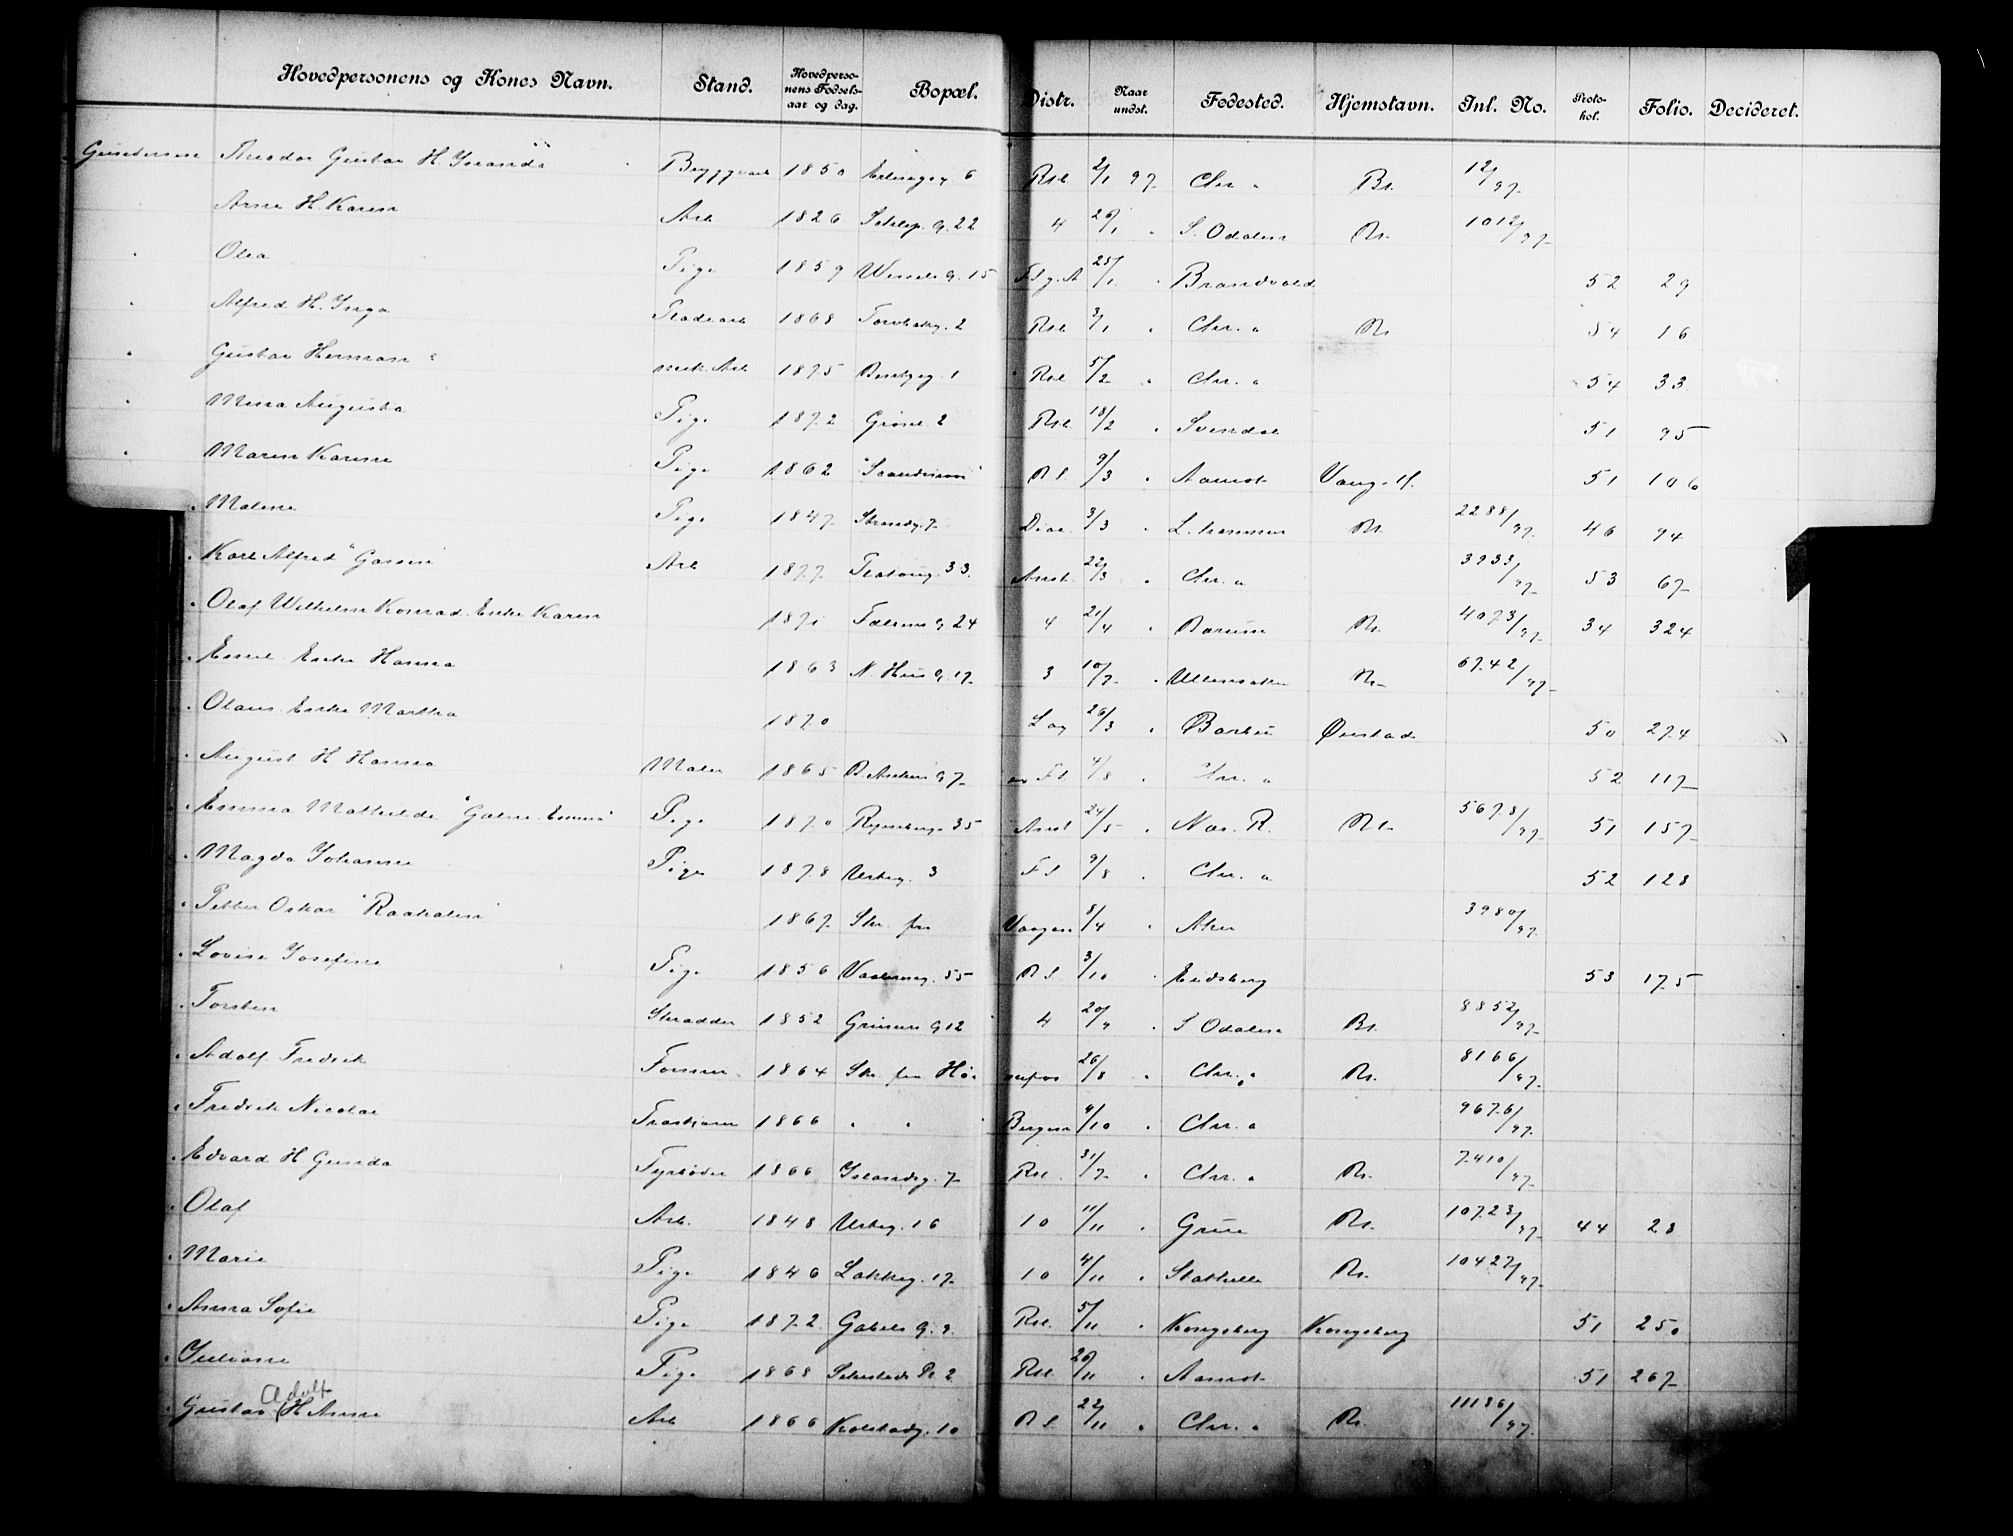 Hovedpersonens og Kones Navn. Stand. Hovedpersonens Fødselsaar og dag. Bopæl. Distr. Naar undst. Fødested. Hjemstavn. Inl. No. Protokol. Folio. Decideret.
Gundersen Theodor Gustav H. Bryggearb 1850 6 Rsl 2/1 97 Chr. " Rs. 12/97
Arne H. Karen Arb 1826 G. 22 4 26/1 " S. Odalen Rs. 1012/97
" Olea Pige 1859 Wessels G. 15 25/1 " Brandvold 52 29
" Alfred H. Inga 1868 2 Rsl 3/1 " Chr. " Rs 54 16
" Gustav Herman mek. Arb 1875 1 Rsl 5/2 " Chr. " 54 33
" Mina Augusta Pige 1872 Grønl. 2 Rsl 18/2 " Svindal 51 95
" Maren Karine Pige 1862 Rl. 9/3 " Aamot Vang. H. 51 106
" Malene Pige 1847 Strandg. 7 Diac 3/3 " L. hammer Rs. 2288/97 46 94
" Karl Alfred Arb 1877 33 Anst. 22/3 " Chr. " 3933/97 53 67
" Olaf Wilhelm Konrad. Enke Karen 1871 G. 24 4 21/4 " Bærum Rs. 4073/97 34 324
" Emil Enke Hanna 1863 N. Hus G. 17 3 10/7 " Ullensaker Rs 6742/97
" Olaus Enke Martha 1870 Lag 26/3 " Barbu Øiestad 50 274
" August H Hanna Maler 1865 G 7 Fl 4/8 " Chr. " 52 117
" Emma Mathilde Pige 1870 35 Anst 24/5 " Nes. R. Rs 5678/97 51 157
" Magda Johanne Pige 1878 Urteg. 3 Fl 9/8 " Chr. " 52 128
" Petter Oskar "Raaholen" 1867 Skr. fra Vaagan 8/4 " Aker 3980/97
" Lovise Josefine Pige 1856 Vaalereng. 55 Rl 3/10 " Eidsberg 53 175
" Torsten Skrædder 1852 G 12 4 20/9 " S Odalen Rs. 8852/97
" Adolf Fredrik Former 1864 Skr. fra Hønefos 26/8 " Chr. " Rs. 8166/97
" Fredrik Nicolai 1866 " " Bergen 4/10 " Chr. " 9676/97
" Edvard H Gunda Fyrbøder 1866 Islandsg. 7 Rsl. 31/7 " Chr. " Rs. 7410/97
" Olaf Arb. 1848 Urteg. 16 10 11/11 " Grue Rs. 10723/97 44 28
" Marie Pige 1846 Lakkeg. 17 10 4/11 " Stathelle Rs. 10427/97
" Anna Sofie Pige 1872 Gabels G. 9 Rsl. 5/11 " Kongsberg Kongsberg 51 250
" Juliane Pige 1868 Sehesteds Pl. 2 Rsl 26/11 " Aamot 51 267
" Gustav Adolf H Anna Arb 1866 Kolstadg. 10 Rl. 22/11 " Chr. " Rs. 11136/97